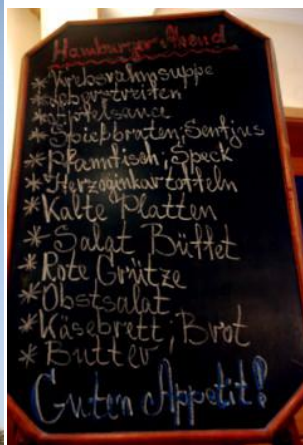 Hamburger Abend
* Krebsrahmsuppe
* Leberstreifen
* Apfelsauce
* Spießbraten, Senfjus
* Pfannfisch, Speck
* Herzoginkartoffeln
* Kalte Platten
* Salat Büffet
* Rote Grütze
* Obstsalat
* Käsebrett, Brot
* Butter
Guten Appetit!